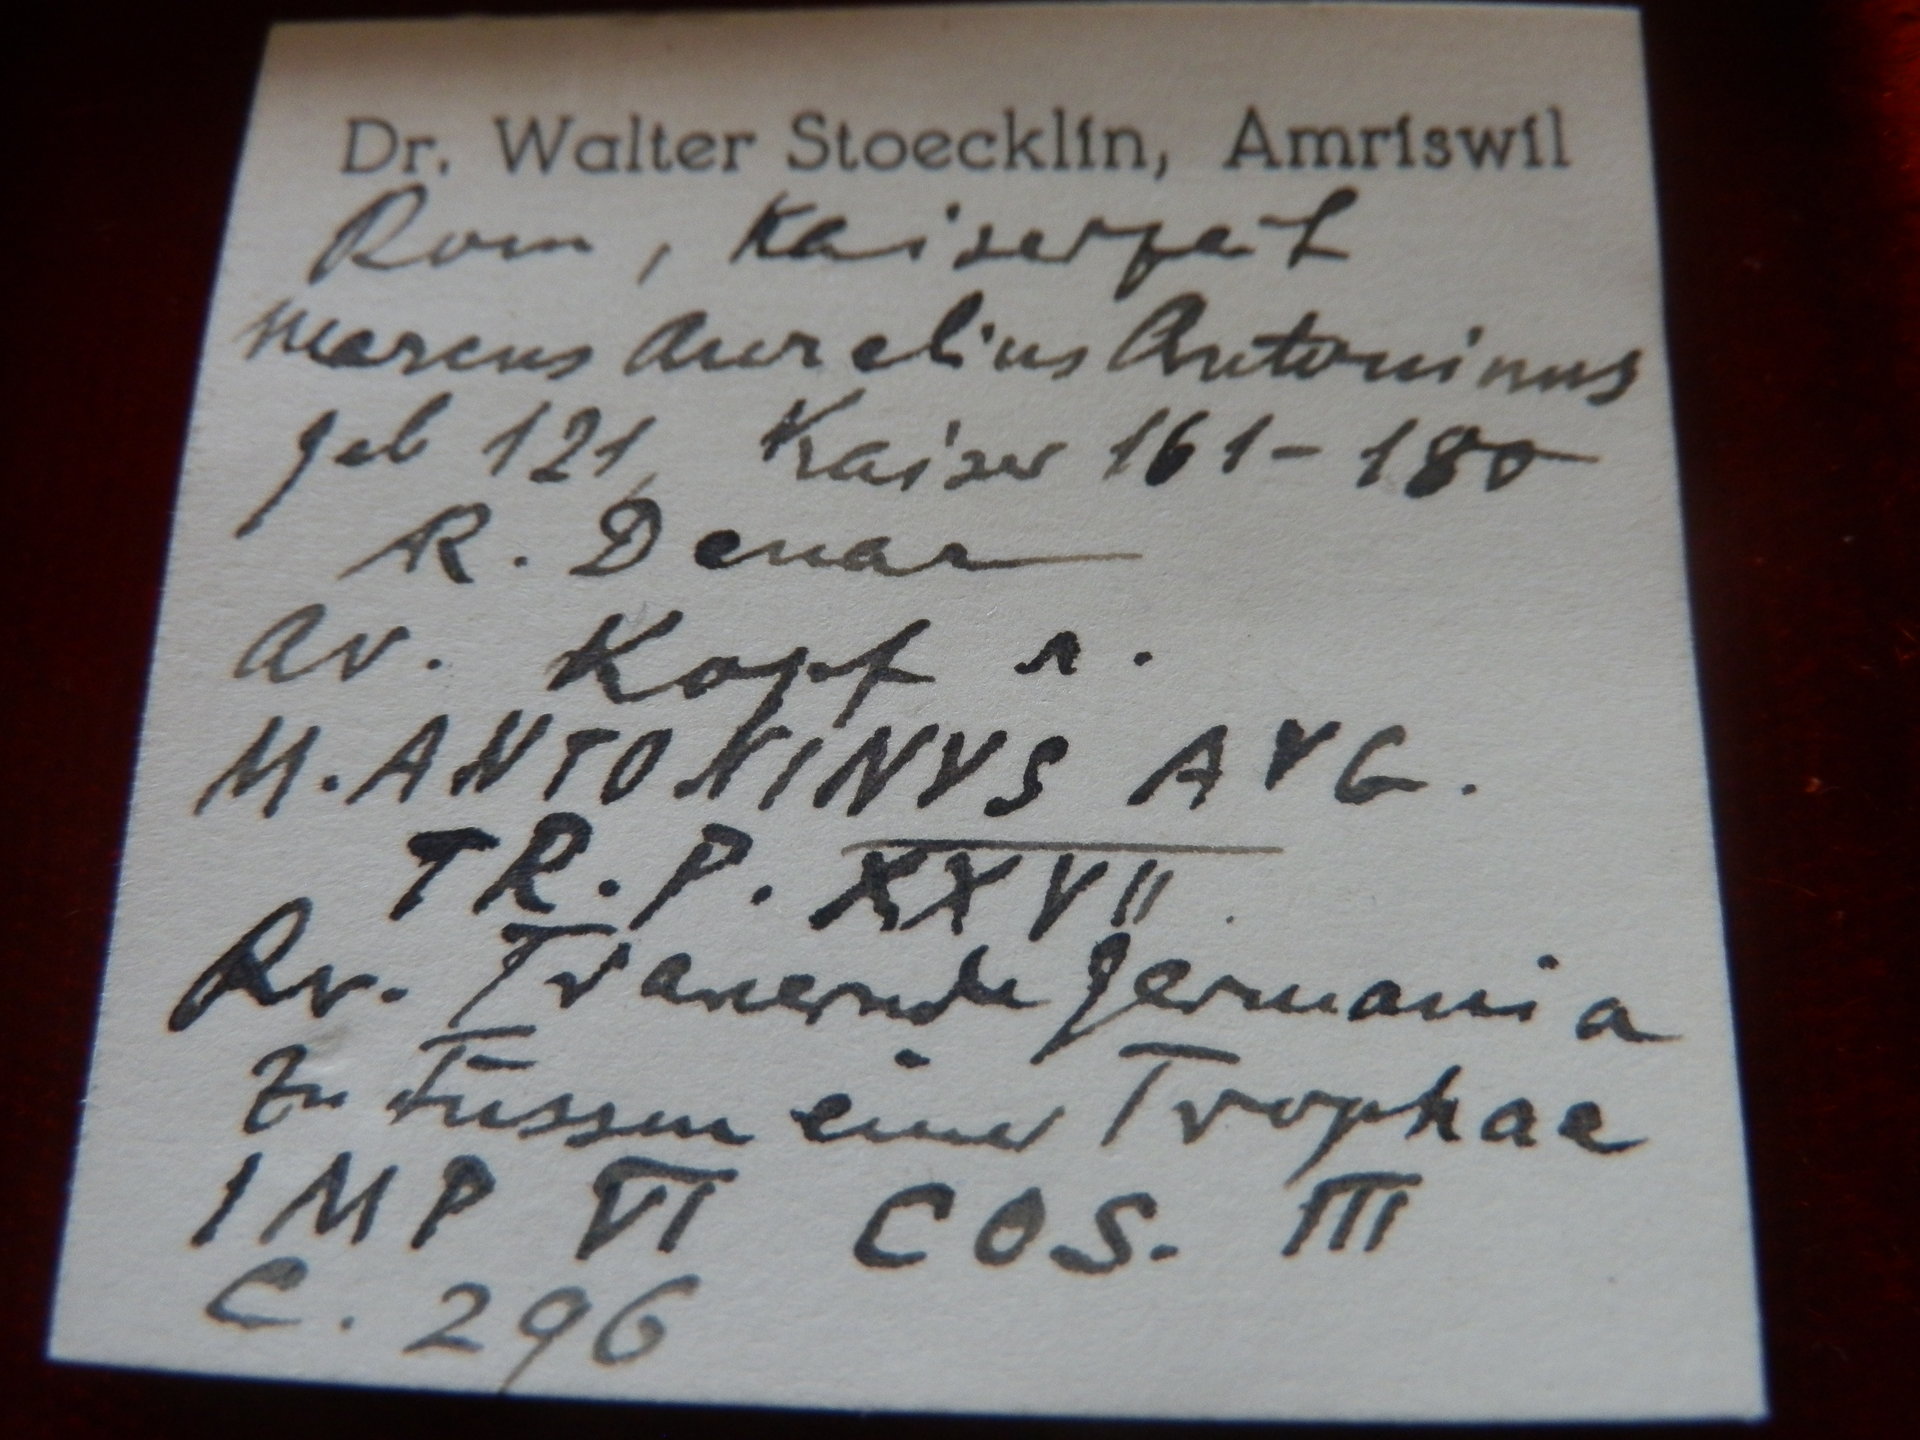 Dr. Walter Stoecklin, Amriswil
Rom, Kaiserzeit
Marcus Aurelius Antoninus
geb 121, Kaiser 161-180
AR. Denar
Av. Kopf r.
M. ANTONINVS AVG.
TR. P. XXVII.
Rv. Trauernde Germania
zu Füssen einer Trophae
IMP VI COS. III
C. 296